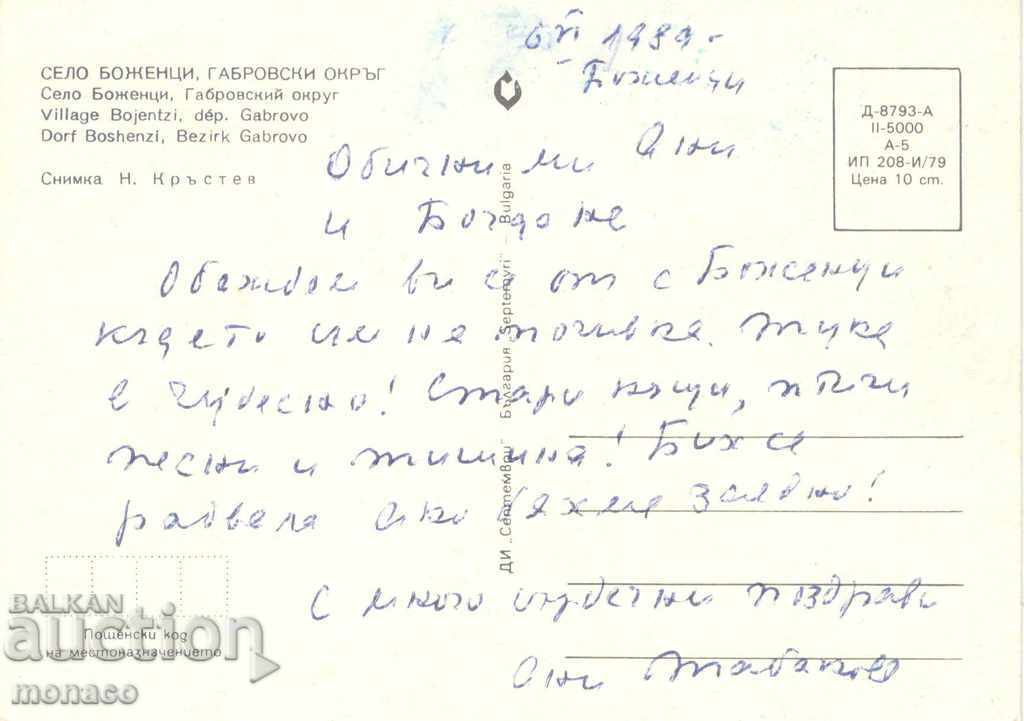 6 VI 1989-
Боженци
СЕЛО БОЖЕНЦИ, ГАБРОВСКИ ОКРЪГ
Село Боженци, Габровский округ
Village Bojentzi, dép. Gabrovo
Dorf Boshenzi, Bezirk Gabrovo
Снимка Н. Кръстев
Д-8793-А
II-5000
А-5
ИП 208-И/79
Цена 10 ст.
Обични ми Ани
и Богдане
Обаждам ви се от с Боженци
където сме на почивка. Тука
е чудесно! Стари къщи, птичи
песни и тишина! Бих се
радвала ако бяхме заедно!
С много сърдечни поздрави
Ани
ДИ „Септември" България „Septemvri" – Bulgaria
Пощенски код
на местоназначението
BALKAN
auction
monaco